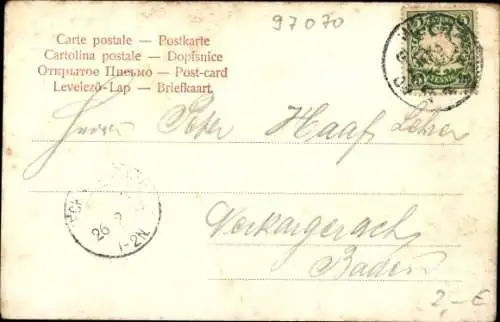 97070
Carte postale — Postkarte
Cartolina postale — Dopisnice
Открытое Письмо — Post-card
Levelező-Lap — Briefkaart
Herrn Peter Haaf, Lehrer
Neckargerach
Baden
26
1-2N
2,- €